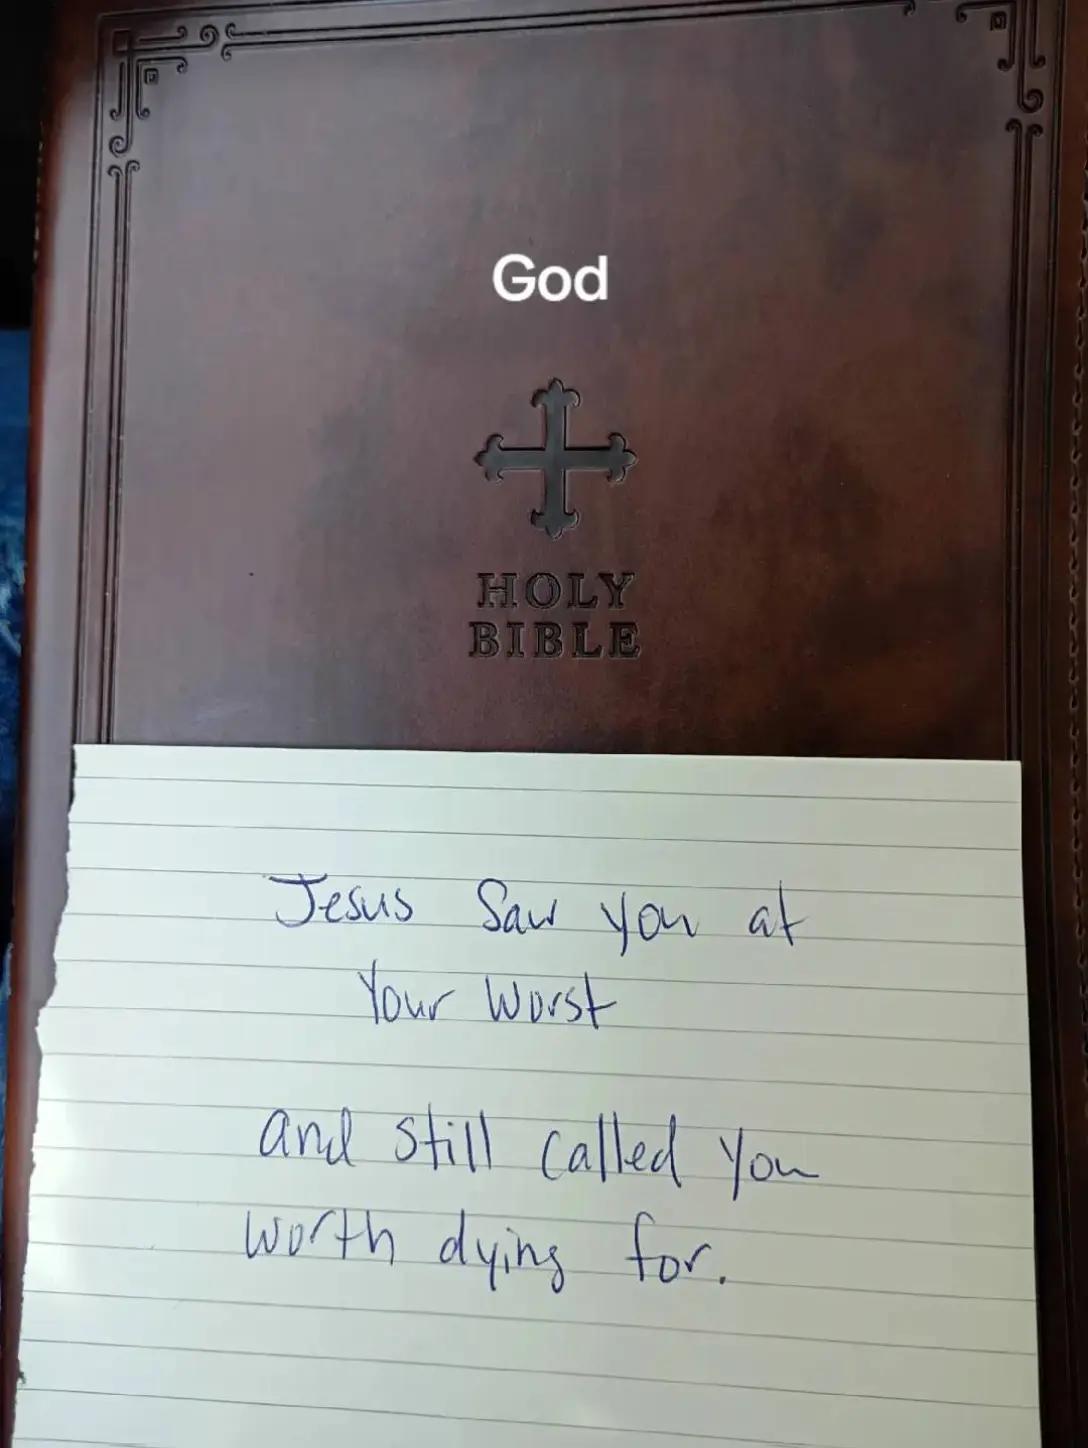 God
HOLY
BIBLE
Jesus Saw you at
Your Worst
and still called you
worth dying for.